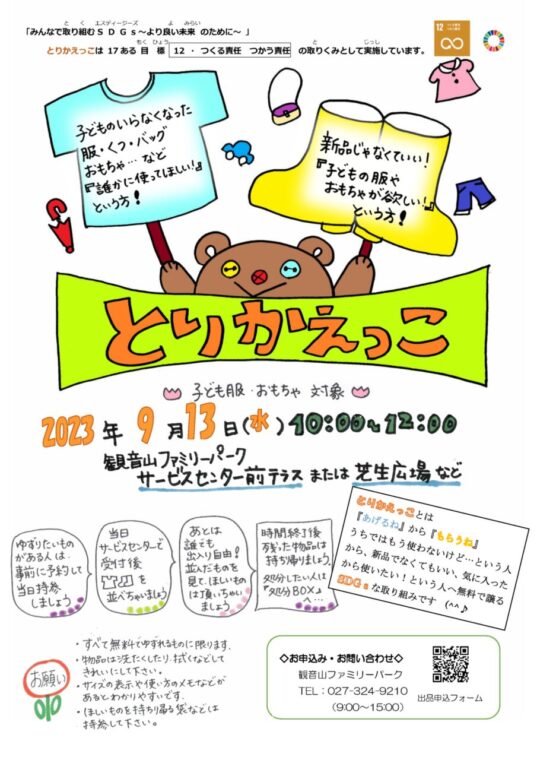 「みんなで取り組むＳＤＧｓ～より良い未来 のために～ 」
とりかえっこは 17ある 目 標 12 ・ つくる責任 つかう責任 の取りくみとして実施しています。
12
子どものいらなくなった
服・くつ・バッグ
おもちゃ… など
『誰かに使ってほしい!』
という方!
新品じゃなくていい!
『子どもの服や
おもちゃが欲しい!』
という方!
とりかえっこ
子ども服・おもちゃ 対象
2023年 9月13日(水) 10:00～12:00
観音山ファミリーパーク
サービスセンター前テラス または 芝生広場 など
ゆずりたいもの
がある人は、
事前に予約して
当日持参
しましょう
当日
サービスセンターで
受付後
を
並べちゃいましょう
あとは
誰でも
出入り自由!
並んだものを
見て、ほしいもの
は頂いちゃい
ましょう
時間終了後
残った物品は
持ち帰りましょう。
処分したい人は
『処分BOX』
へ…
とりかえっことは
『あげるね』から『もらうね』
うちではもう使わないけど…という人
から、新品でなくてもいい、気に入った
から使いたい！という人へ無料で譲る
SDGｓな取り組みです (^^♪
お願い
・すべて無料でゆずれるものに限ります.
・物品は洗たくしたり、拭くなどして
きれいにして下さい。
・サイズの表示や使い方のメモなどが
あるとわかりやすいです.
・ほしいものを持ち帰る袋などは
持参して下さい。
◇お申込み・お問い合わせ◇
観音山ファミリーパーク
TEL：027-324-9210
(9:00～15:00)
出品申込フォーム